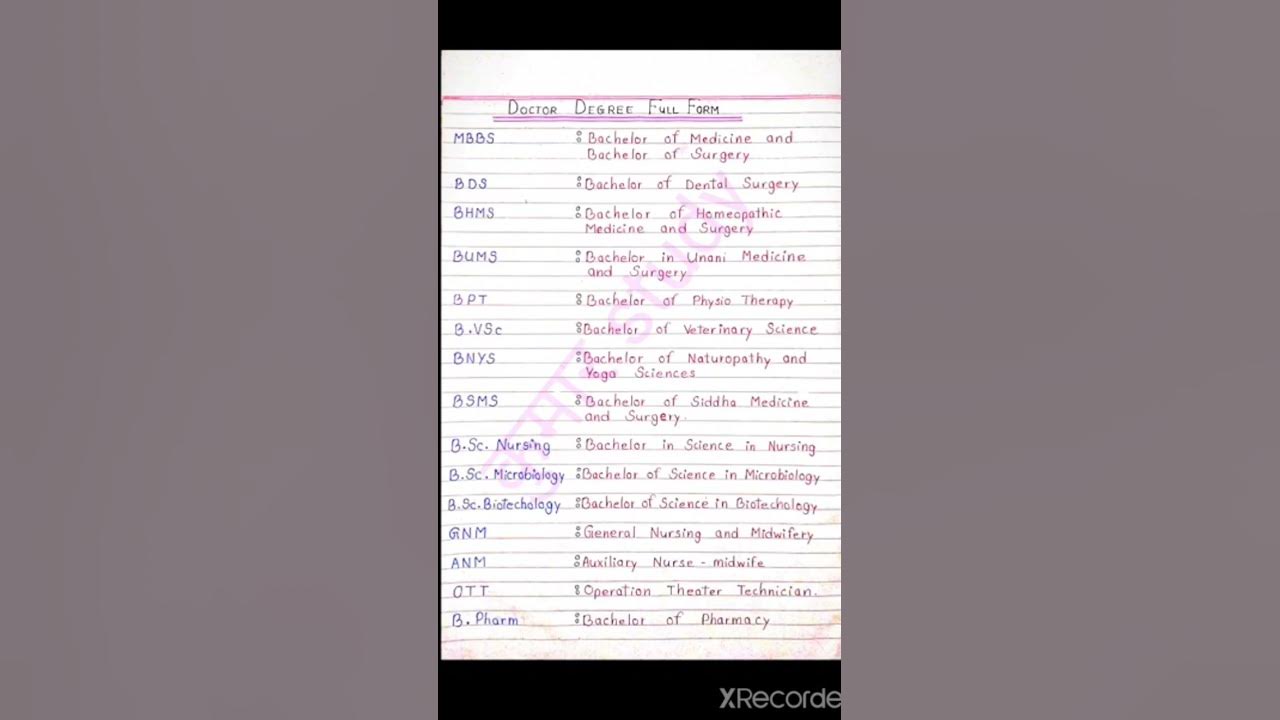 DOCTOR DEGREE FULL FORM
MBBS : Bachelor of Medicine and
Bachelor of Surgery
BDS : Bachelor of Dental Surgery
BHMS : Bachelor of Homeopathic
Medicine and Surgery
BUMS : Bachelor in Unani Medicine
and Surgery
BPT : Bachelor of Physio Therapy
B.VSc : Bachelor of Veterinary Science
BNYS : Bachelor of Naturopathy and
Yoga Sciences
BSMS : Bachelor of Siddha Medicine
and Surgery.
B.Sc. Nursing : Bachelor in Science in Nursing
B.Sc. Microbiology : Bachelor of Science in Microbiology
B.Sc. Biotechology : Bachelor of Science in Biotechology
GNM : General Nursing and Midwifery
ANM : Auxiliary Nurse - midwife
OTT : Operation Theater Technician.
B. Pharm : Bachelor of Pharmacy
कुमार study
XRecorde